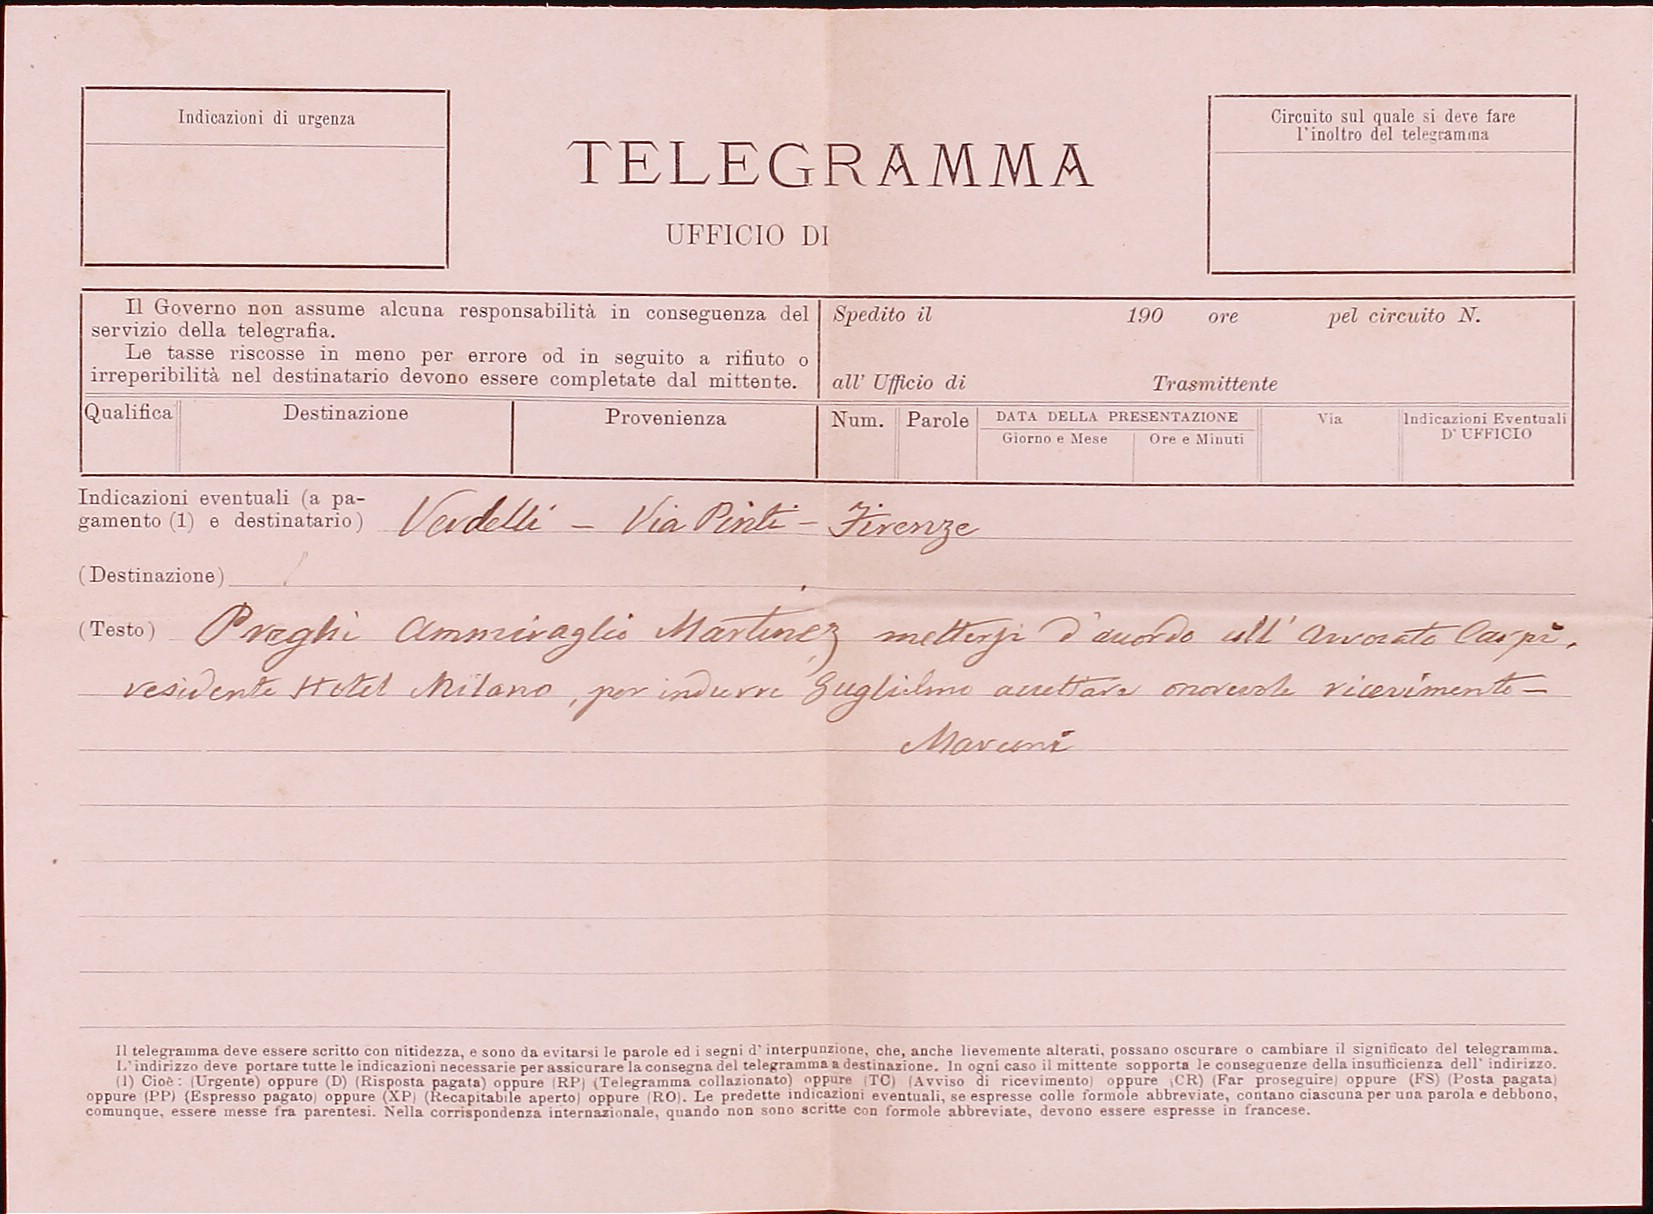 Indicazioni di urgenza
TELEGRAMMA
UFFICIO DI
Circuito sul quale si deve fare
l'inoltro del telegramma
Il Governo non assume alcuna responsabilità in conseguenza del
servizio della telegrafia.
Le tasse riscosse in meno per errore od in seguito a rifiuto o
irreperibilità nel destinatario devono essere completate dal mittente.
Spedito il 190 ore pel circuito N.
all' Ufficio di Trasmittente
Qualifica Destinazione Provenienza Num. Parole DATA DELLA PRESENTAZIONE Via Indicazioni Eventuali
Giorno e Mese Ore e Minuti D' UFFICIO
Indicazioni eventuali (a pa-
gamento (1) e destinatario) Verdelli - Via Pinti - Firenze
(Destinazione)
(Testo) Preghi Ammiraglio Martinez mettersi d'accordo coll' Avvocato Carpi,
residente Hotel Milano, per indurre Guglielmo accettare onorevole ricevimento -
Marconi
Il telegramma deve essere scritto con nitidezza, e sono da evitarsi le parole ed i segni d' interpunzione, che, anche lievemente alterati, possano oscurare o cambiare il significato del telegramma.
L' indirizzo deve portare tutte le indicazioni necessarie per assicurare la consegna del telegramma a destinazione. In ogni caso il mittente sopporta le conseguenze della insufficienza dell' indirizzo.
(1) Cioè: (Urgente) oppure (D) (Risposta pagata) oppure (RP) (Telegramma collazionato) oppure (TC) (Avviso di ricevimento) oppure (CR) (Far proseguire) oppure (FS) (Posta pagata)
oppure (PP) (Espresso pagato) oppure (XP) (Recapitabile aperto) oppure (RO). Le predette indicazioni eventuali, se espresse colle formole abbreviate, contano ciascuna per una parola e debbono,
comunque, essere messe fra parentesi. Nella corrispondenza internazionale, quando non sono scritte con formole abbreviate, devono essere espresse in francese.